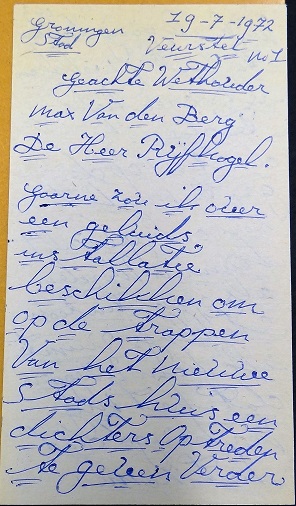 Groningen 19-7-1972
Stad Veurstel no 1
Geachte Wethouder
max Van den Berg
De Heer Rijfkogel.
gaarne zou ik over
een geluids
installatie
beschikken om
op de trappen
Van het nieuwe
Stads huis een
dichters Op treden
te geven Verder